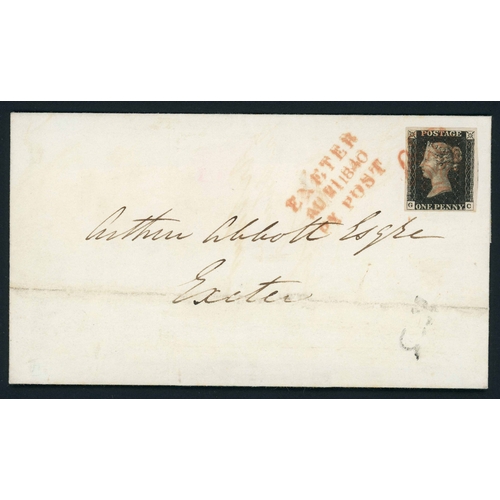 EXETER
AU 21 1840
PY POST
POSTAGE
G C
ONE PENNY
Arthur Abbott Esqre
Exeter